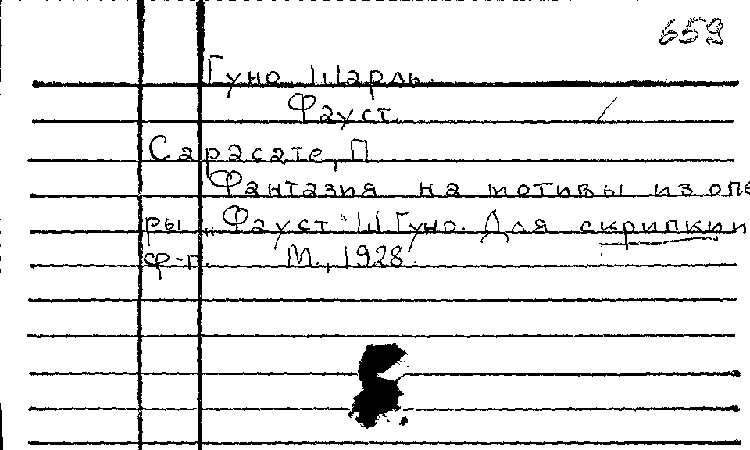 659
Гуно Шарль.
Фауст.
Сарасате, П.
Фантазия на мотивы из опе
ры „Фауст" Ш. Гуно. Для скрипки и
ф-п. М., 1928.